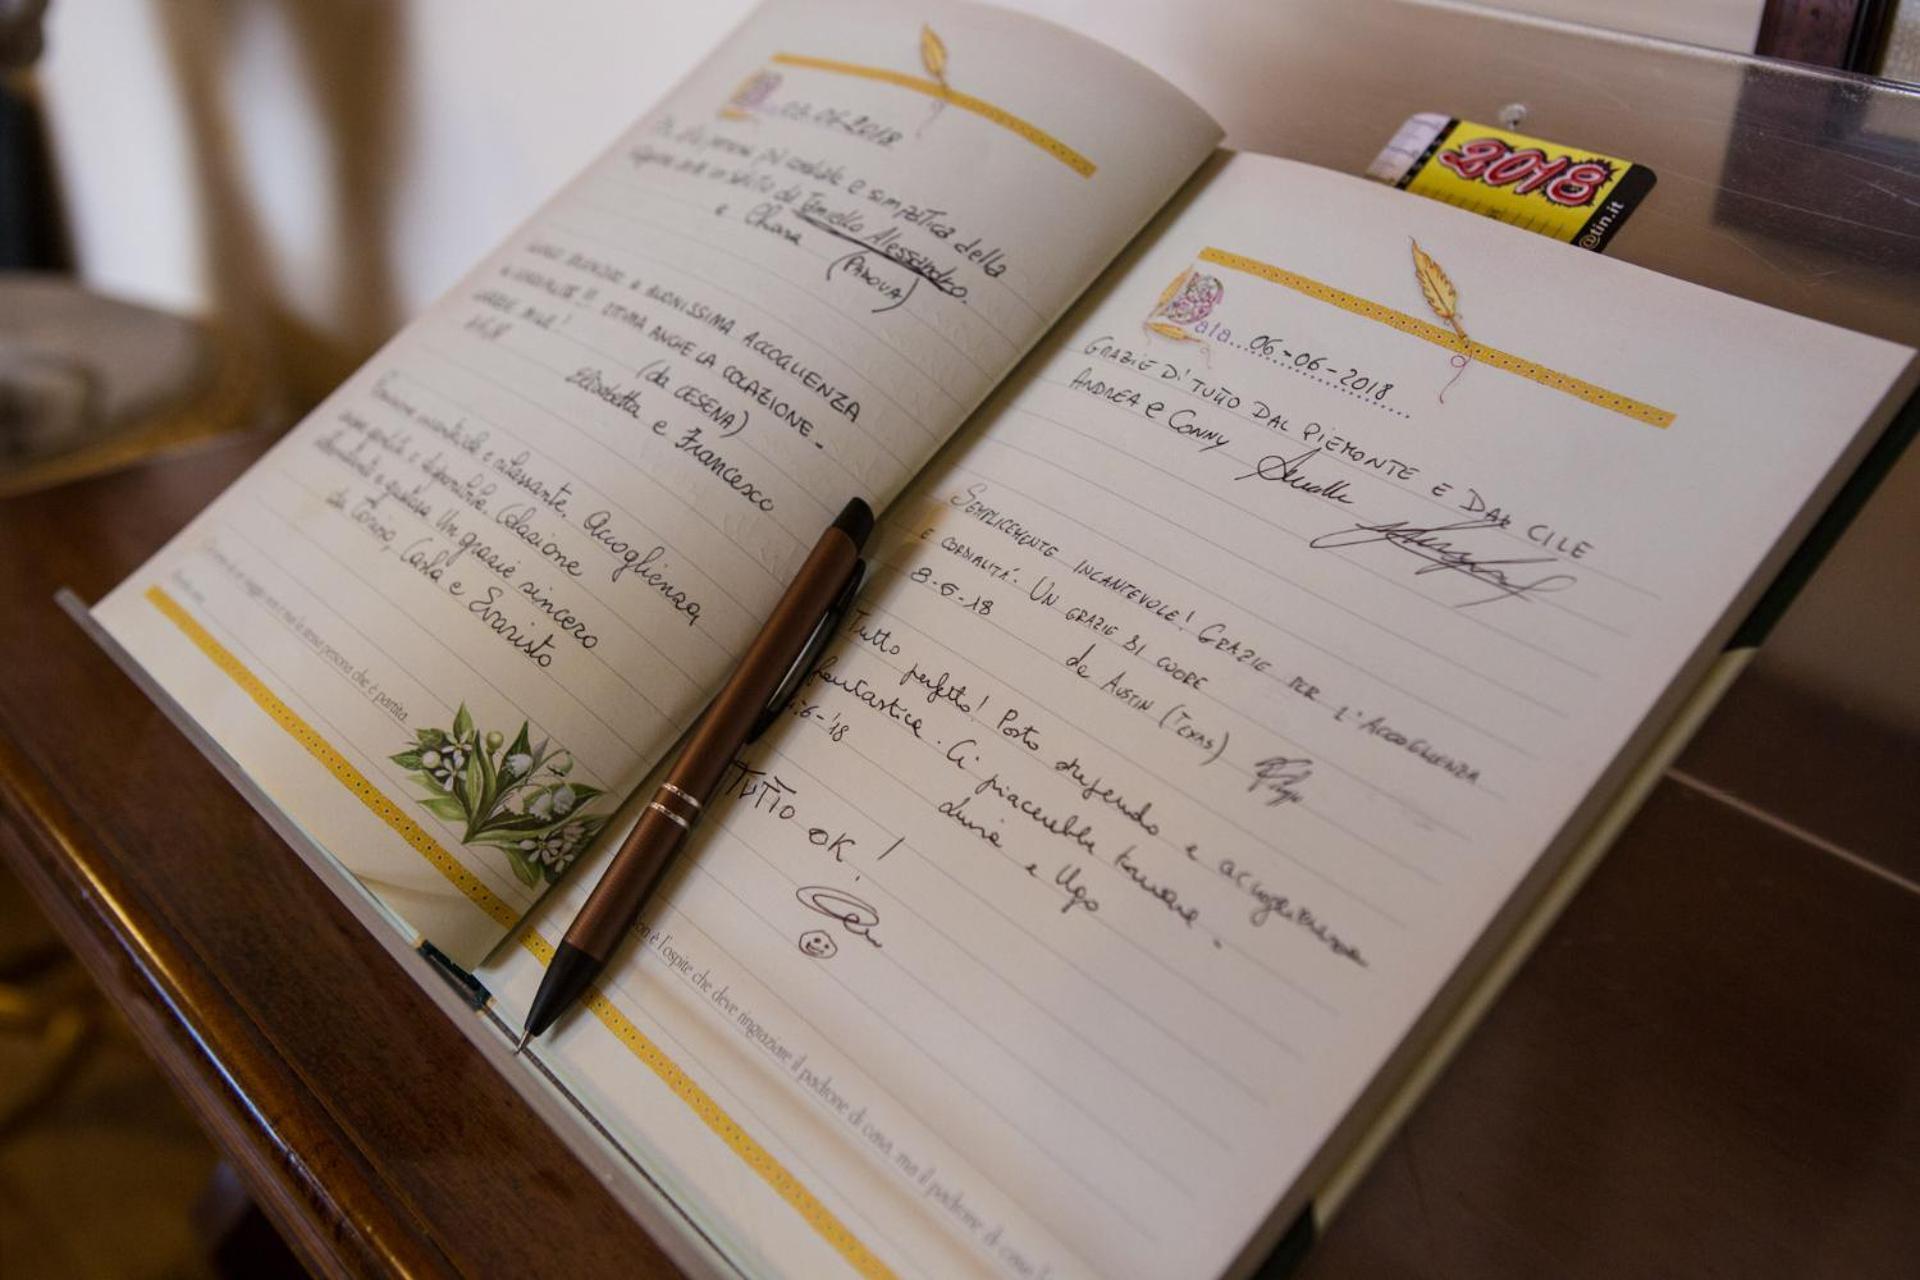 03.06.2018
più cordiale e simpatica della
da Tamiello Alessandro.
e Chiara
(PADOVA)
BUONISSIMA ACCOGLIENZA
OTTIMA ANCHE LA COLAZIONE
(da CESENA)
Elisabetta e Francesco
e rilassante. Accoglienza,
e disponibile. Colazione
Un grazie sincero
da Torino, Carla e Evaristo
la stessa persona che è partita.
2018
@tin.it
Data 06-06-2018
GRAZIE DI TUTTO DAL PIEMONTE E DAL CILE
ANDREA e CONNY
SEMPLICEMENTE INCANTEVOLE! GRAZIE PER L'ACCOGLIENZA
E CORDIALITÀ. UN GRAZIE DI CUORE
8-6-18 da AUSTIN (TEXAS)
Tutto perfetto! Posto stupendo e accoglienza
fantastica. Ci piacerebbe tornare.
6-'18 e Ugo
TUTTO OK!
è l'ospite che deve ringraziare il padrone di casa, ma il padrone di casa